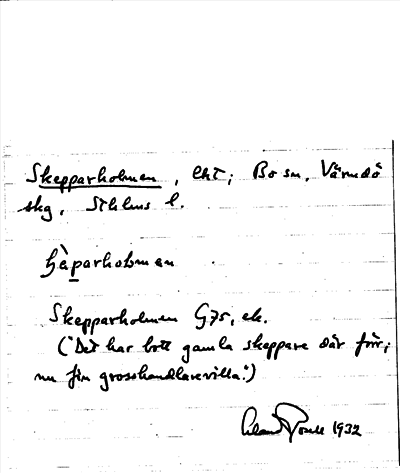 Skepparholmen, lht; Bo sn, Värmdö
skg, Sthlms l.
Skepparholmen G75, ek.
("Det har bott gamla skeppare där förr;
nu fin grosshandlarevilla.")
1932